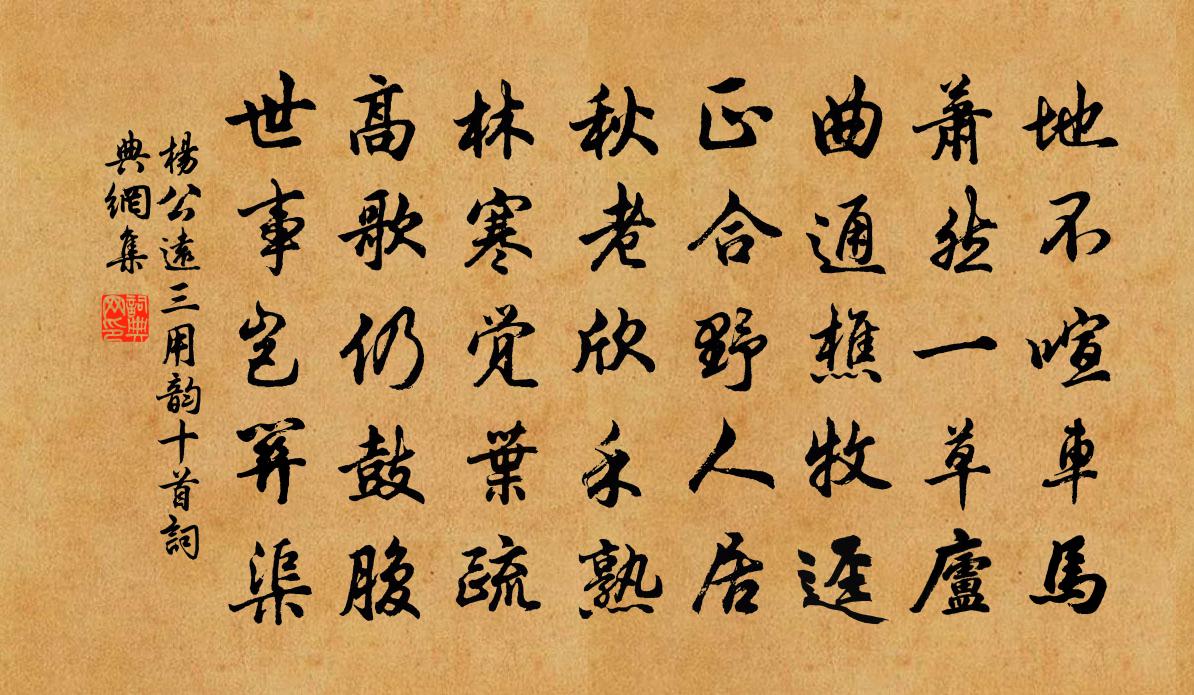 地不喧車馬
蕭然一草廬
曲通樵牧逕
正合野人居
秋老欣禾熟
林寒覺葉疏
高歌仍鼓腹
世事豈關渠
楊公遠三用韵十首詞
典網集
詞典
网印